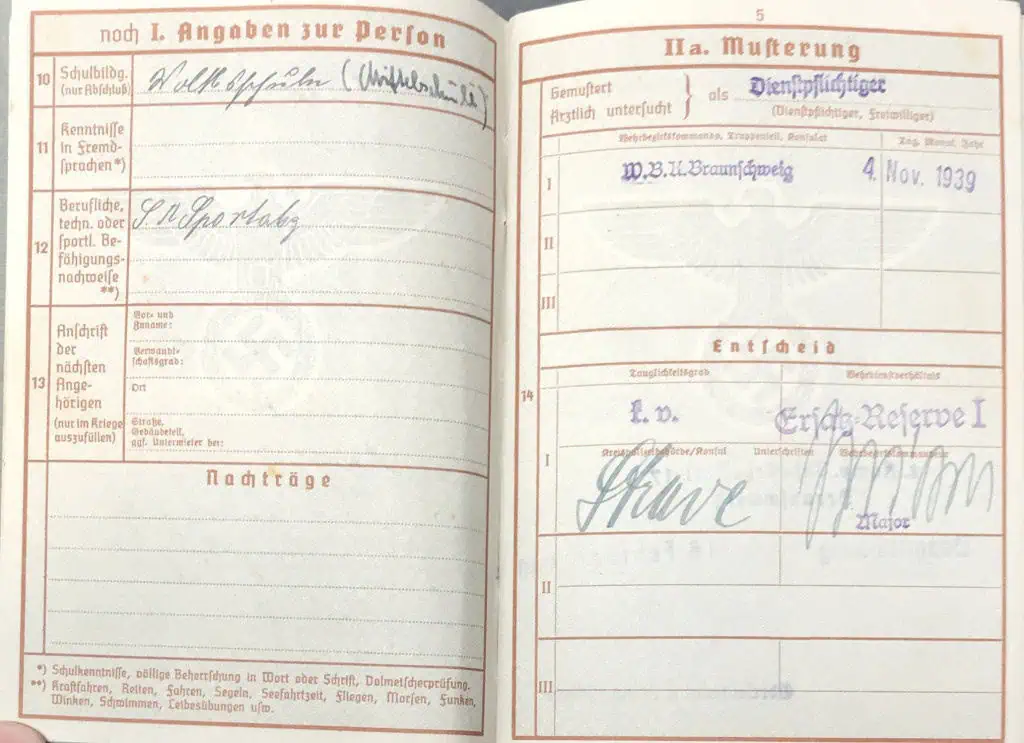 noch I. Angaben zur Person
10
Schulbildg.
(nur Abschluß)
Volksschule (Mittelschule)
11
Kenntnisse
in Fremd-
sprachen*)
12
Berufliche,
techn. oder
sportl. Be-
fähigungs-
nachweise
**)
Sportabz
13
Anschrift
der
nächsten
Ange-
hörigen
(nur im Kriege
auszufüllen)
Vor- und
Zuname:
Verwandt-
schaftsgrad:
Ort
Straße,
Gebäudeteil,
ggf. Untermieter bei:
Nachträge
*) Schulkenntnisse, völlige Beherrschung in Wort oder Schrift, Dolmetscherprüfung.
**) Kraftfahren, Reiten, Fahren, Segeln, Seefahrtzeit, Fliegen, Morsen, Funken,
Winken, Schwimmen, Leibesübungen usw.
5
IIa. Musterung
Gemustert
Ärztlich untersucht } als Dienstpflichtiger
(Dienstpflichtiger, Freiwilliger)
Wehrbezirkskommando, Truppenteil, Konsulat
Tag, Monat, Jahr
I
W.B.K. Braunschweig
4. Nov. 1939
II
III
Entscheid
14
Tauglichkeitsgrad
Wehrdienstverhältnis
k. v.
Ersatz-Reserve I
I
Kreispolizeibehörde/Konsul
Unterschriften
Wehrbezirkskommandeur
Major
II
III